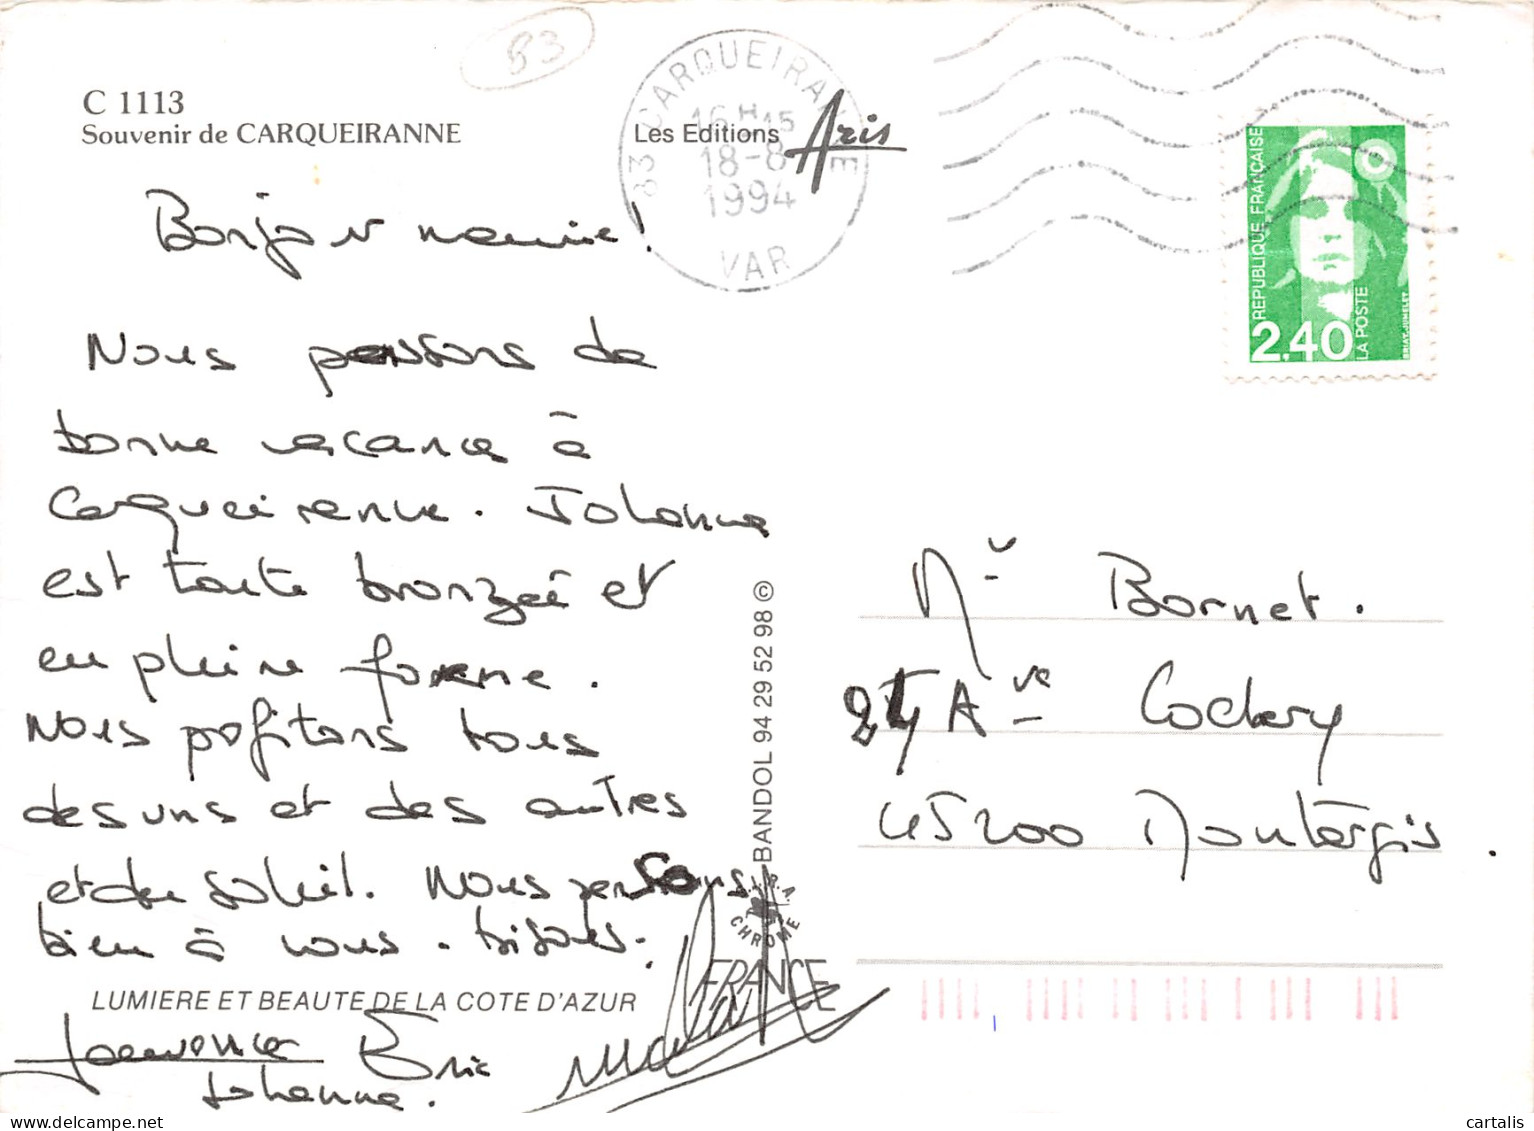 83
C 1113
Souvenir de CARQUEIRANNE
Les Editions Aris
83 CARQUEIRANNE
16H15
18-8
1994
VAR
REPUBLIQUE FRANÇAISE
2,40
LA POSTE
BRIAT-JUMELET
Bonjour mamie!
Nous passons de
bonne vacance à
Carqueiranne. Johanna
est toute bronzée et
en pleine forme.
Nous pofitons tous
des uns et des autres
et du soleil. Nous pensons
bien à vous. bisous.
LUMIERE ET BEAUTE DE LA COTE D'AZUR
Laurence Eric
Johanna.
BANDOL 94 29 52 98 ©
CHROME
FRANCE
Bornet.
Ave Cochery
45200 Montargis.
cartalis